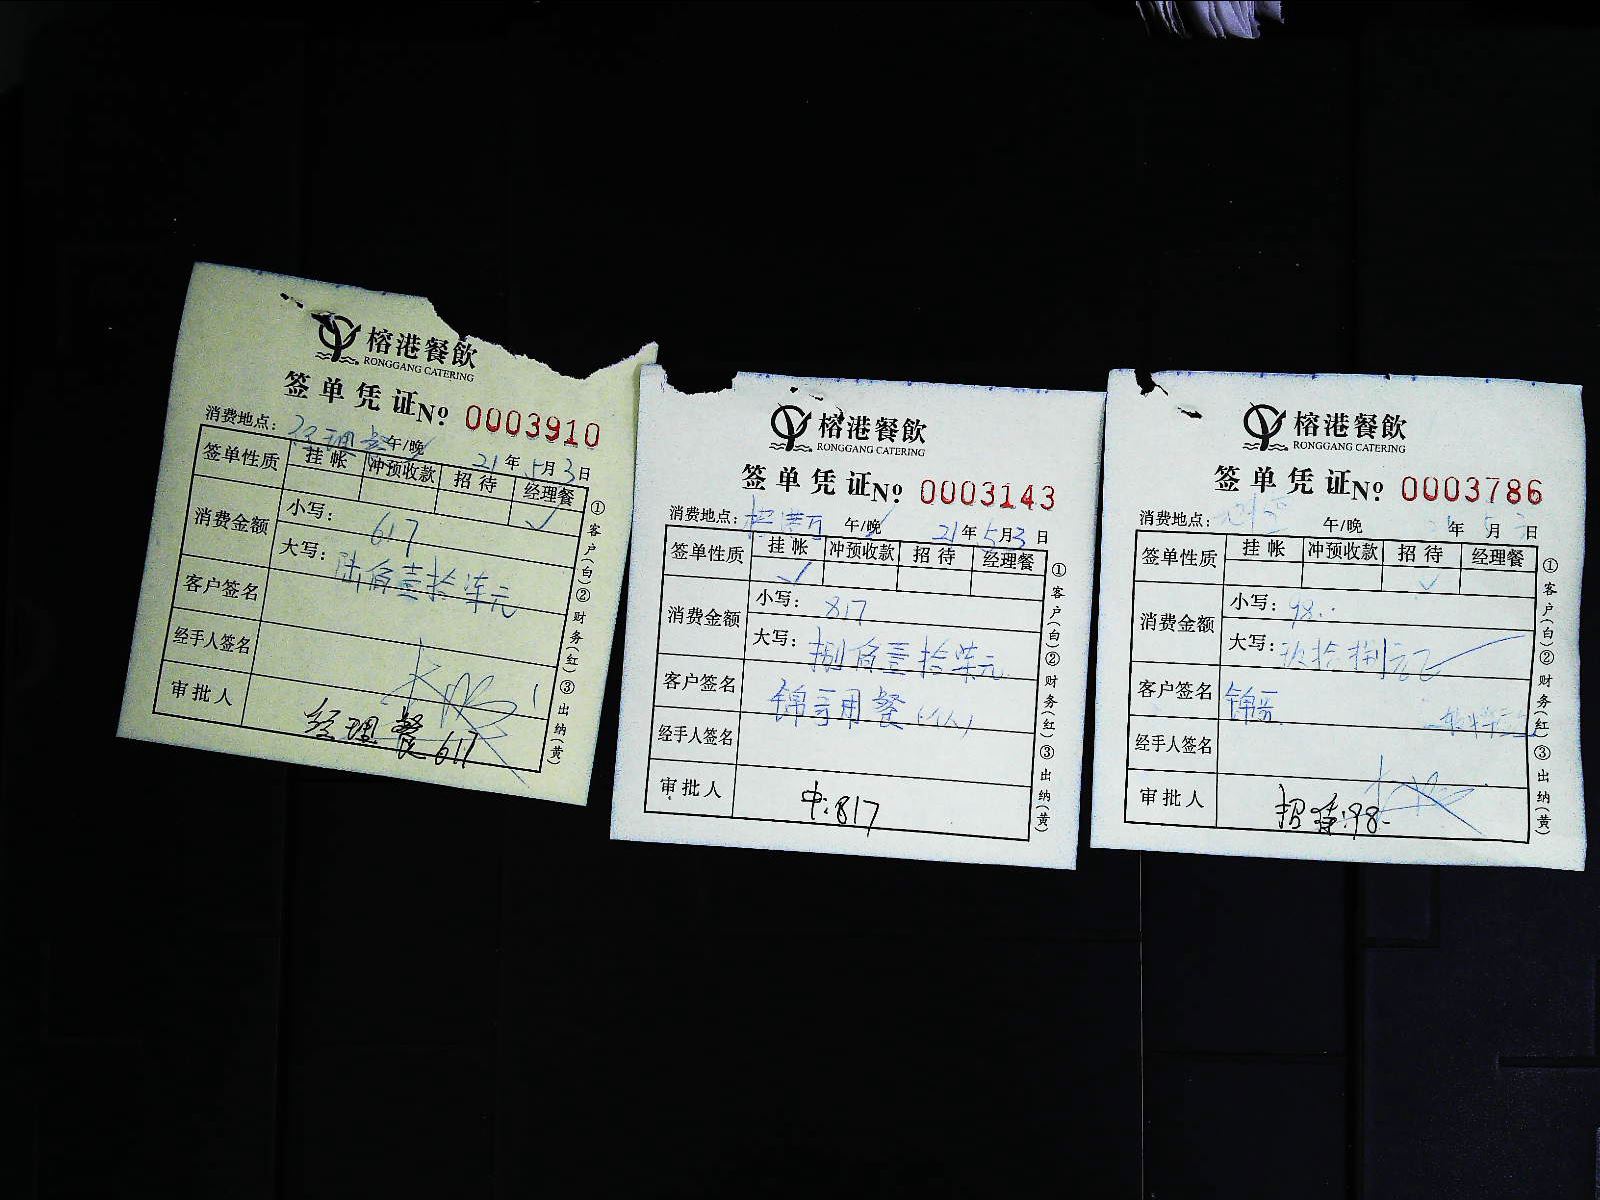 榕港餐飲
RONGGANG CATERING
签单凭证No 0003910
消费地点：经理餐 午/晚 21年5月3日
签单性质 挂帐 冲预收款 招待 经理餐
✓
消费金额 小写：617
大写：陆佰壹拾柒元
客户签名
经手人签名
审批人 经理餐617
①客户(白)②财务(红)③出纳(黄)
榕港餐飲
RONGGANG CATERING
签单凭证No 0003143
消费地点： 午/晚 21年5月3日
签单性质 挂帐 冲预收款 招待 经理餐
✓
消费金额 小写：817
大写：捌佰壹拾柒元
客户签名 锦哥用餐
经手人签名
审批人 中:817
①客户(白)②财务(红)③出纳(黄)
榕港餐飲
RONGGANG CATERING
签单凭证No 0003786
消费地点： 午/晚 年5月3日
签单性质 挂帐 冲预收款 招待 经理餐
✓
消费金额 小写：98
大写：玖拾捌元
客户签名 锦哥
经手人签名
审批人 招待:98
①客户(白)②财务(红)③出纳(黄)